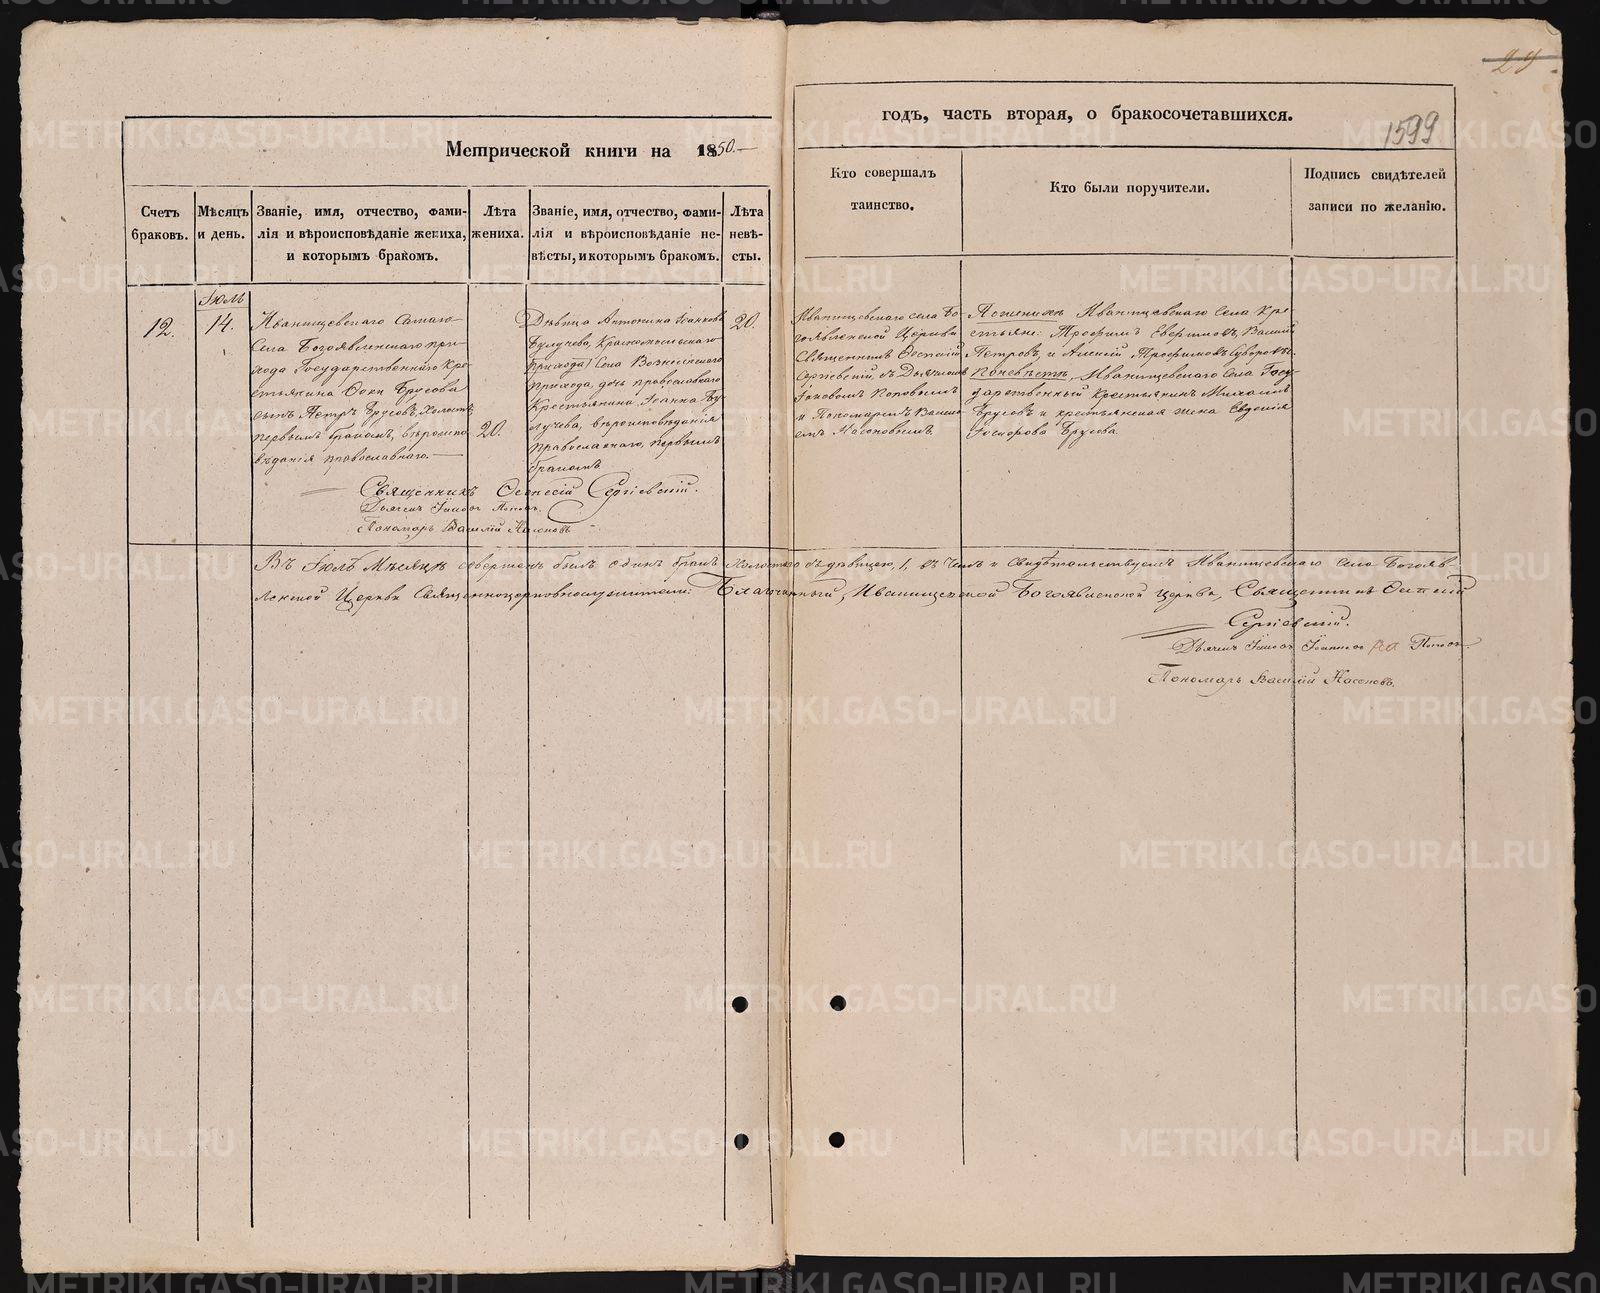 29
1599
Метрической книги на 1850.
годъ, часть вторая, о бракосочетавшихся.
Счетъ браковъ.
Мѣсяцъ и день.
Званіе, имя, отчество, фами-
лія и вѣроисповѣданіе жениха,
и которымъ бракомъ.
Лѣта
жениха.
Званіе, имя, отчество, фами-
лія и вѣроисповѣданіе не-
вѣсты, и которымъ бракомъ.
Лѣта
невѣ-
сты.
Кто совершалъ
таинство.
Кто были поручители.
Подпись свидѣтелей
записи по желанію.
Іюль
12.
14.
Иванищевскаго
Села Богоявленскаго при-
хода Государственнаго Кре-
стьянина Фоки Брусова
сынъ Петръ Брусовъ, Холостъ,
первымъ бракомъ, вѣроиспо-
вѣданія православнаго.
20.
Дѣвица Антонина Іоаннова
Булучева,
прихода Села Вознесенского
прихода, дочь православнаго
Крестьянина Іоанна Бу-
лучева, вѣроисповѣданія
православнаго, первымъ
бракомъ
20.
Иванищевскаго села Бо-
гоявленской Церкви
Священникъ
Сергіевскій, съ Дьячкомъ
Іаковомъ Поповымъ
и Пономаремъ Васили-
емъ Насоновымъ.
По женихѣ Иванищевскаго Села Кре-
стьяне: Трофимъ Василій
Петровъ, и Алексій Трофимовъ Суворовы.
По невѣстѣ, Иванищевскаго Села Госу-
дарственный крестьянинъ Михаилъ
Брусовъ и крестьянская жена Евдокія
Брусова.
Священникъ Сергіевскій.
Дьячекъ Іаковъ Поповъ.
Пономарь Василій Насоновъ
Въ Іюлѣ Мѣсяцѣ совершенъ былъ одинъ бракъ Холостаго съ дѣвицею, 1, въ чемъ и свидѣтельствуемъ Иванищевскаго Села Богояв-
ленской Церкви Священноцерковнослужители: Благочинный, Иванищевской Богоявленской Церкви, Священникъ
Сергіевскій.
Дьячекъ Іаковъ Поповъ
Пономарь Василій Насоновъ.
METRIKI.GASO-URAL.RU